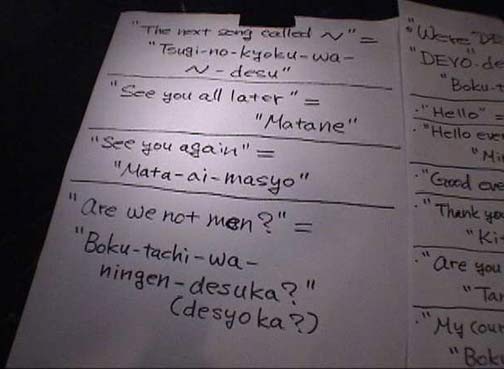 "The next song called ~" =
"Tsugi-no-kyoku-wa-
~ - desu"
"See you all later" =
"Matane"
"See you again" =
"Mata-ai-masyo"
"Are we not men?" =
"Boku-tachi-wa-
ningen-desuka?"
(desyoka?)
"We're DE
"DEVO"-de
"Boku-t
·"Hello" =
·"Hello eve
"Mi
·"Good ev
·"Thank you
"Ki
·"Are you
"Ta
·"My cour
"Boku